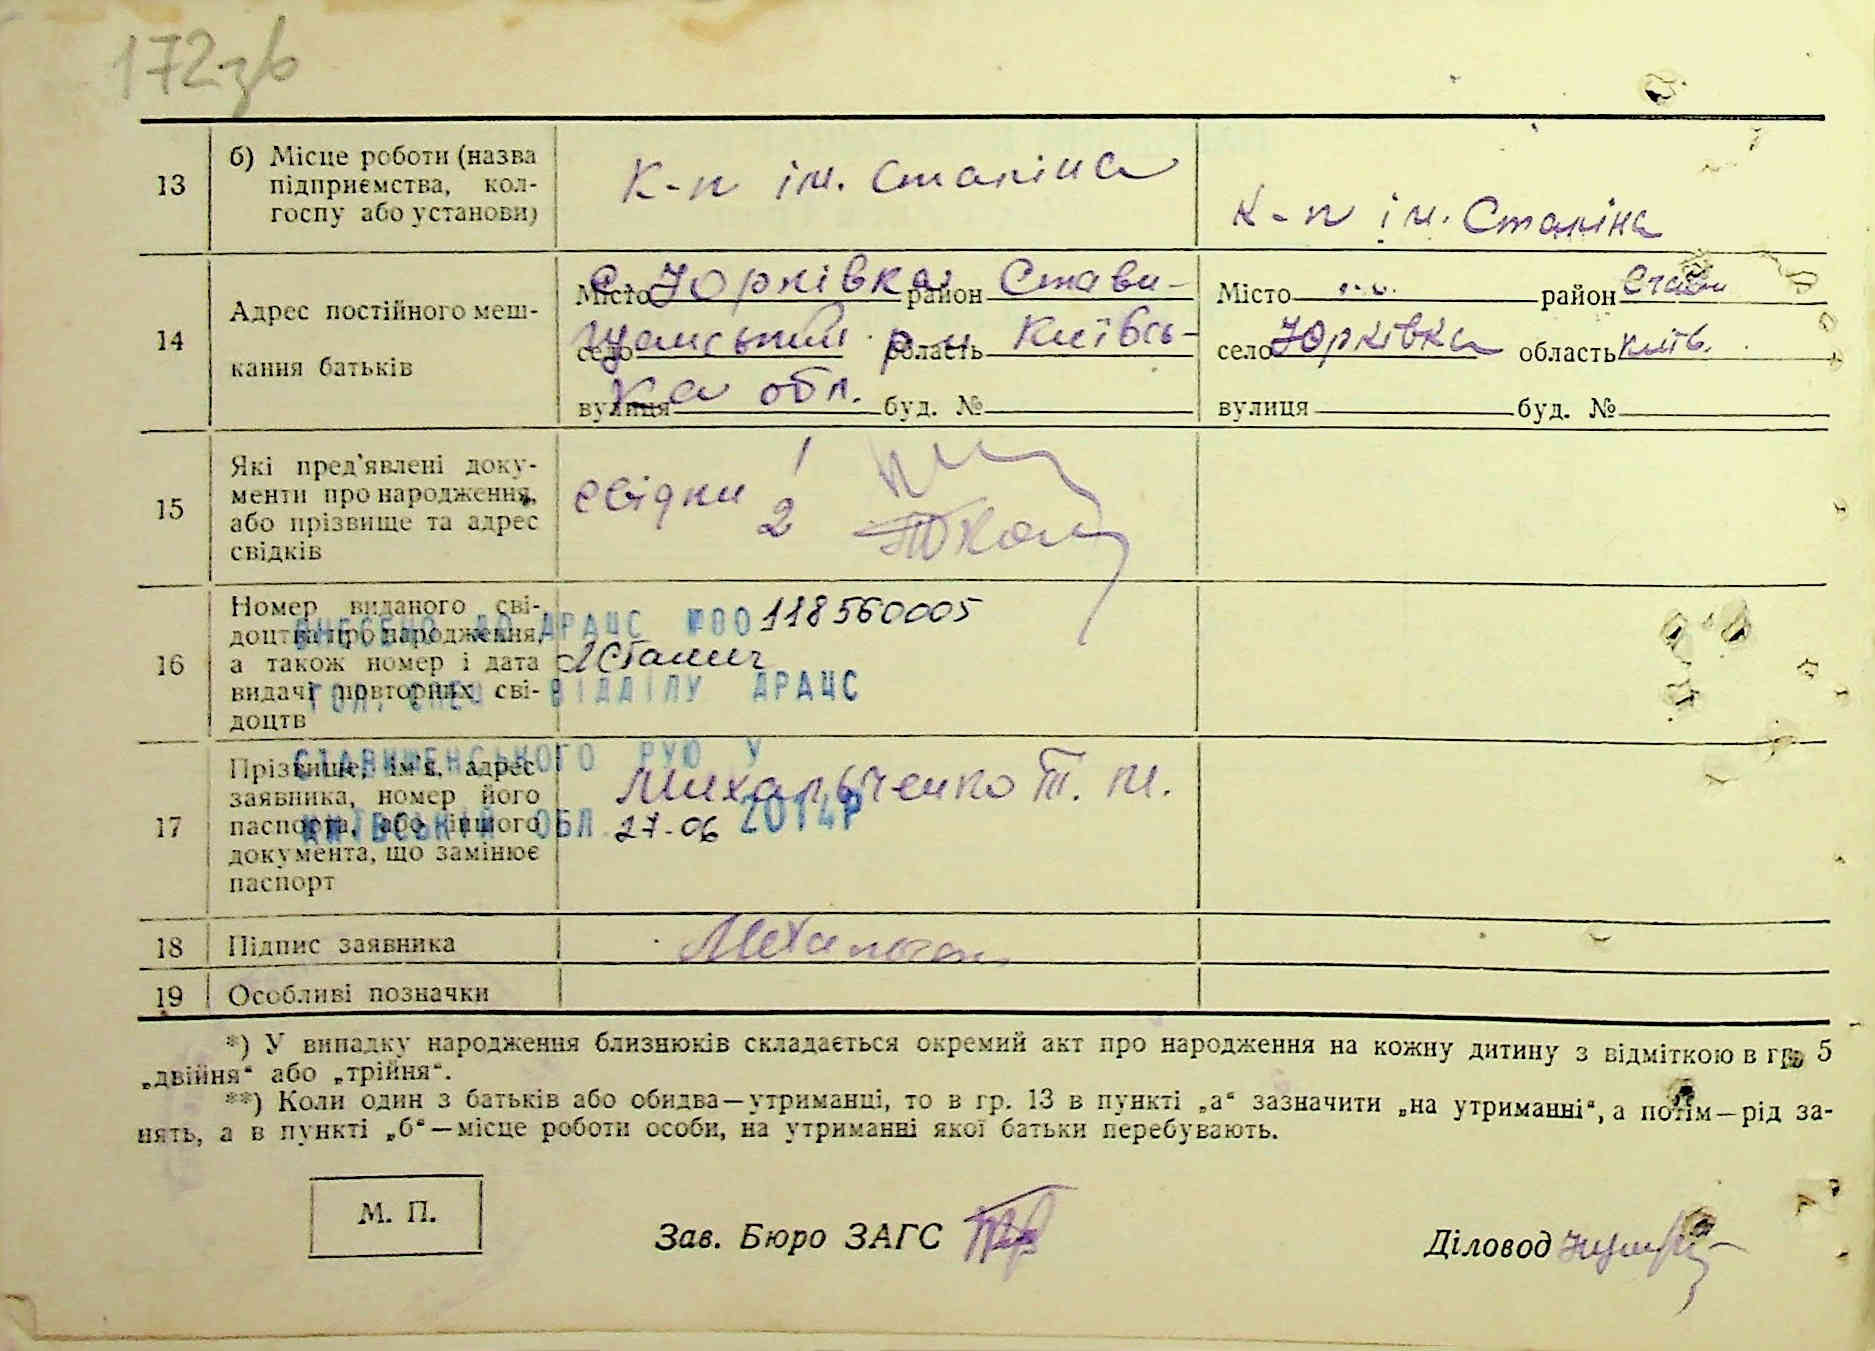 172зв
13
б) Місце роботи (назва
підприємства, кол-
госпу або установи)
к-п ім. Сталіна
к-п ім. Сталіна
14
Адрес постійного меш-
кання батьків
с. Юрківка Стави-
щанський р-н Київсь-
ка обл.
Місто район
село область
вулиця буд. №
Місто район Стави
село Юрківка область Київ.
вулиця буд. №
15
Які пред'явлені доку-
менти про народження,
або прізвище та адрес
свідків
свідки 1
2
16
Номер виданого сві-
доцтва про народження,
а також номер і дата
видачі повторних сві-
доцтв
ВНЕСЕНО ДО ДРАЦС №00118560005
ГОЛ. СПЕЦ ВІДДІЛУ ДРАЦС
СТАВИЩЕНСЬКОГО РУЮ У
КИЇВСЬКІЙ ОБЛ. 27-06 2014Р
17
Прізвище, ім'я, адрес
заявника, номер його
паспорта, або іншого
документа, що замінює
паспорт
Михальченко Т. М.
18
Підпис заявника
19
Особливі позначки
*) У випадку народження близнюків складається окремий акт про народження на кожну дитину з відміткою в гр. 5
„двійня“ або „трійня“.
**) Коли один з батьків або обидва—утриманці, то в гр. 13 в пункті „а“ зазначити „на утриманні“, а потім—рід за-
нять, а в пункті „б“—місце роботи особи, на утриманні якої батьки перебувають.
М. П.
Зав. Бюро ЗАГС
Діловод